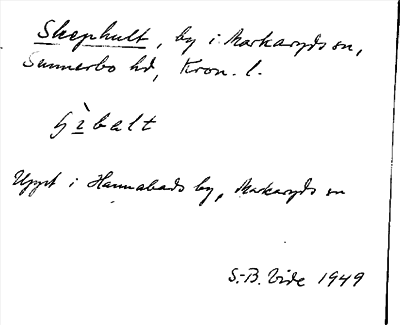 Skephult, by i Markaryds sn,
Sunnerbo hd, Kron. l.
ʃìbalt
Uppt i Hannabads by, Markaryds sn
S.-B. Vide 1949